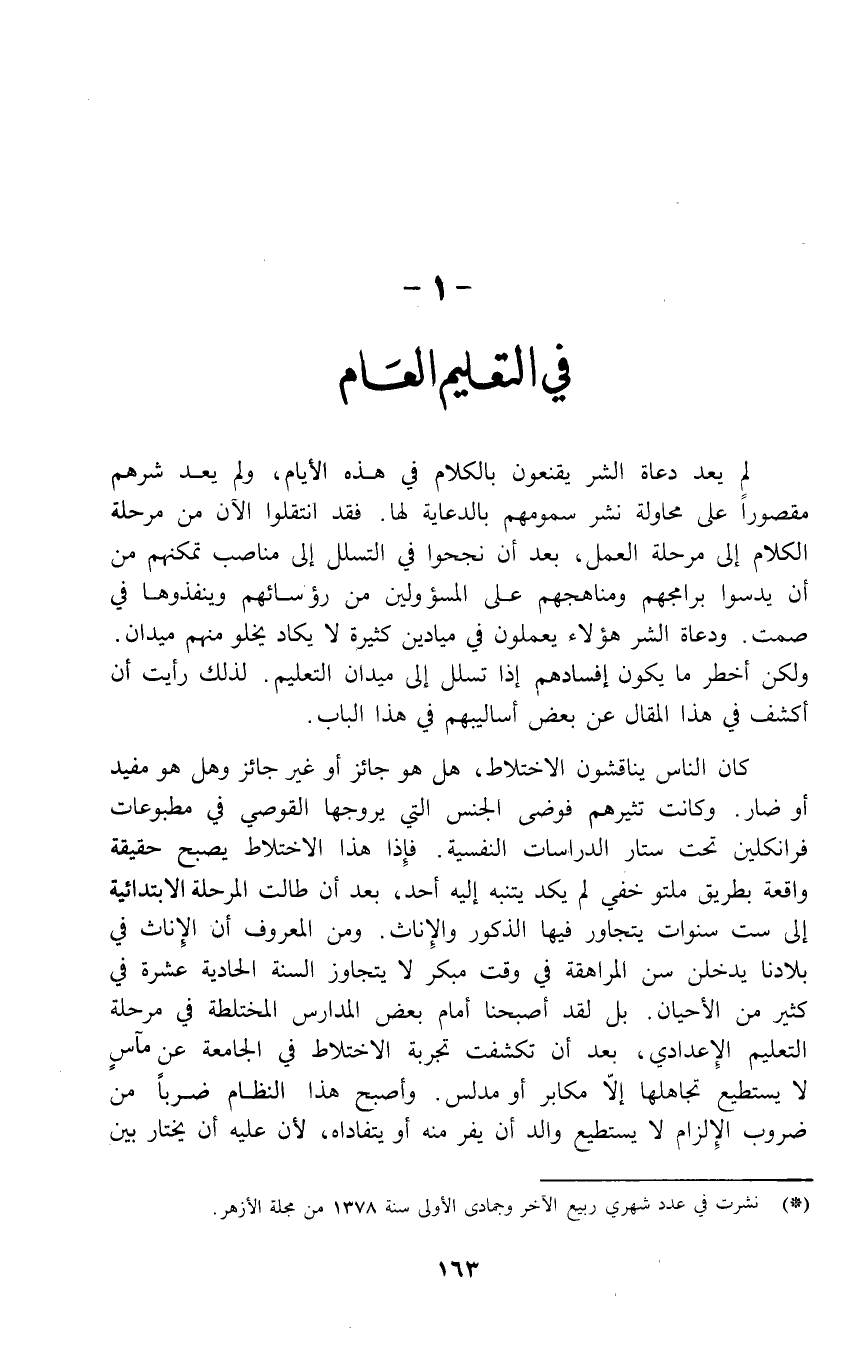 - ١ -
في التعليم العَام
لم يعد دعاة الشر يقنعون بالكلام في هذه الأيام، ولم يعد شرهم
مقصوراً على محاولة نشر سمومهم بالدعاية لها. فقد انتقلوا الآن من مرحلة
الكلام إلى مرحلة العمل، بعد أن نجحوا في التسلل إلى مناصب تمكنهم من
أن يدسوا برامجهم ومناهجهم على المسؤولين من رؤسائهم وينفذوها في
صمت. ودعاة الشر هؤلاء يعملون في ميادين كثيرة لا يكاد يخلو منهم ميدان.
ولكن أخطر ما يكون إفسادهم إذا تسلل إلى ميدان التعليم. لذلك رأيت أن
أكشف في هذا المقال عن بعض أساليبهم في هذا الباب.
كان الناس يناقشون الاختلاط، هل هو جائز أو غير جائز وهل هو مفيد
أو ضار. وكانت تثيرهم فوضى الجنس التي يروجها القوصي في مطبوعات
فرانكلين تحت ستار الدراسات النفسية. فإذا هذا الاختلاط يصبح حقيقة
واقعة بطريق ملتو خفي لم يكد يتنبه إليه أحد، بعد أن طالت المرحلة الابتدائية
إلى ست سنوات يتجاور فيها الذكور والإناث. ومن المعروف أن الإناث في
بلادنا يدخلن سن المراهقة في وقت مبكر لا يتجاوز السنة الحادية عشرة في
كثير من الأحيان. بل لقد أصبحنا أمام بعض المدارس المختلطة في مرحلة
التعليم الإعدادي، بعد أن تكشفت تجربة الاختلاط في الجامعة عن مآسٍ
لا يستطيع تجاهلها إلّا مكابر أو مدلس. وأصبح هذا النظام ضرباً من
ضروب الإلزام لا يستطيع والد أن يفر منه أو يتفاداه، لأن عليه أن يختار بين
(*) نشرت في عدد شهري ربيع الآخر وجمادى الأولى سنة ١٣٧٨ من مجلة الأزهر.
١٦٣